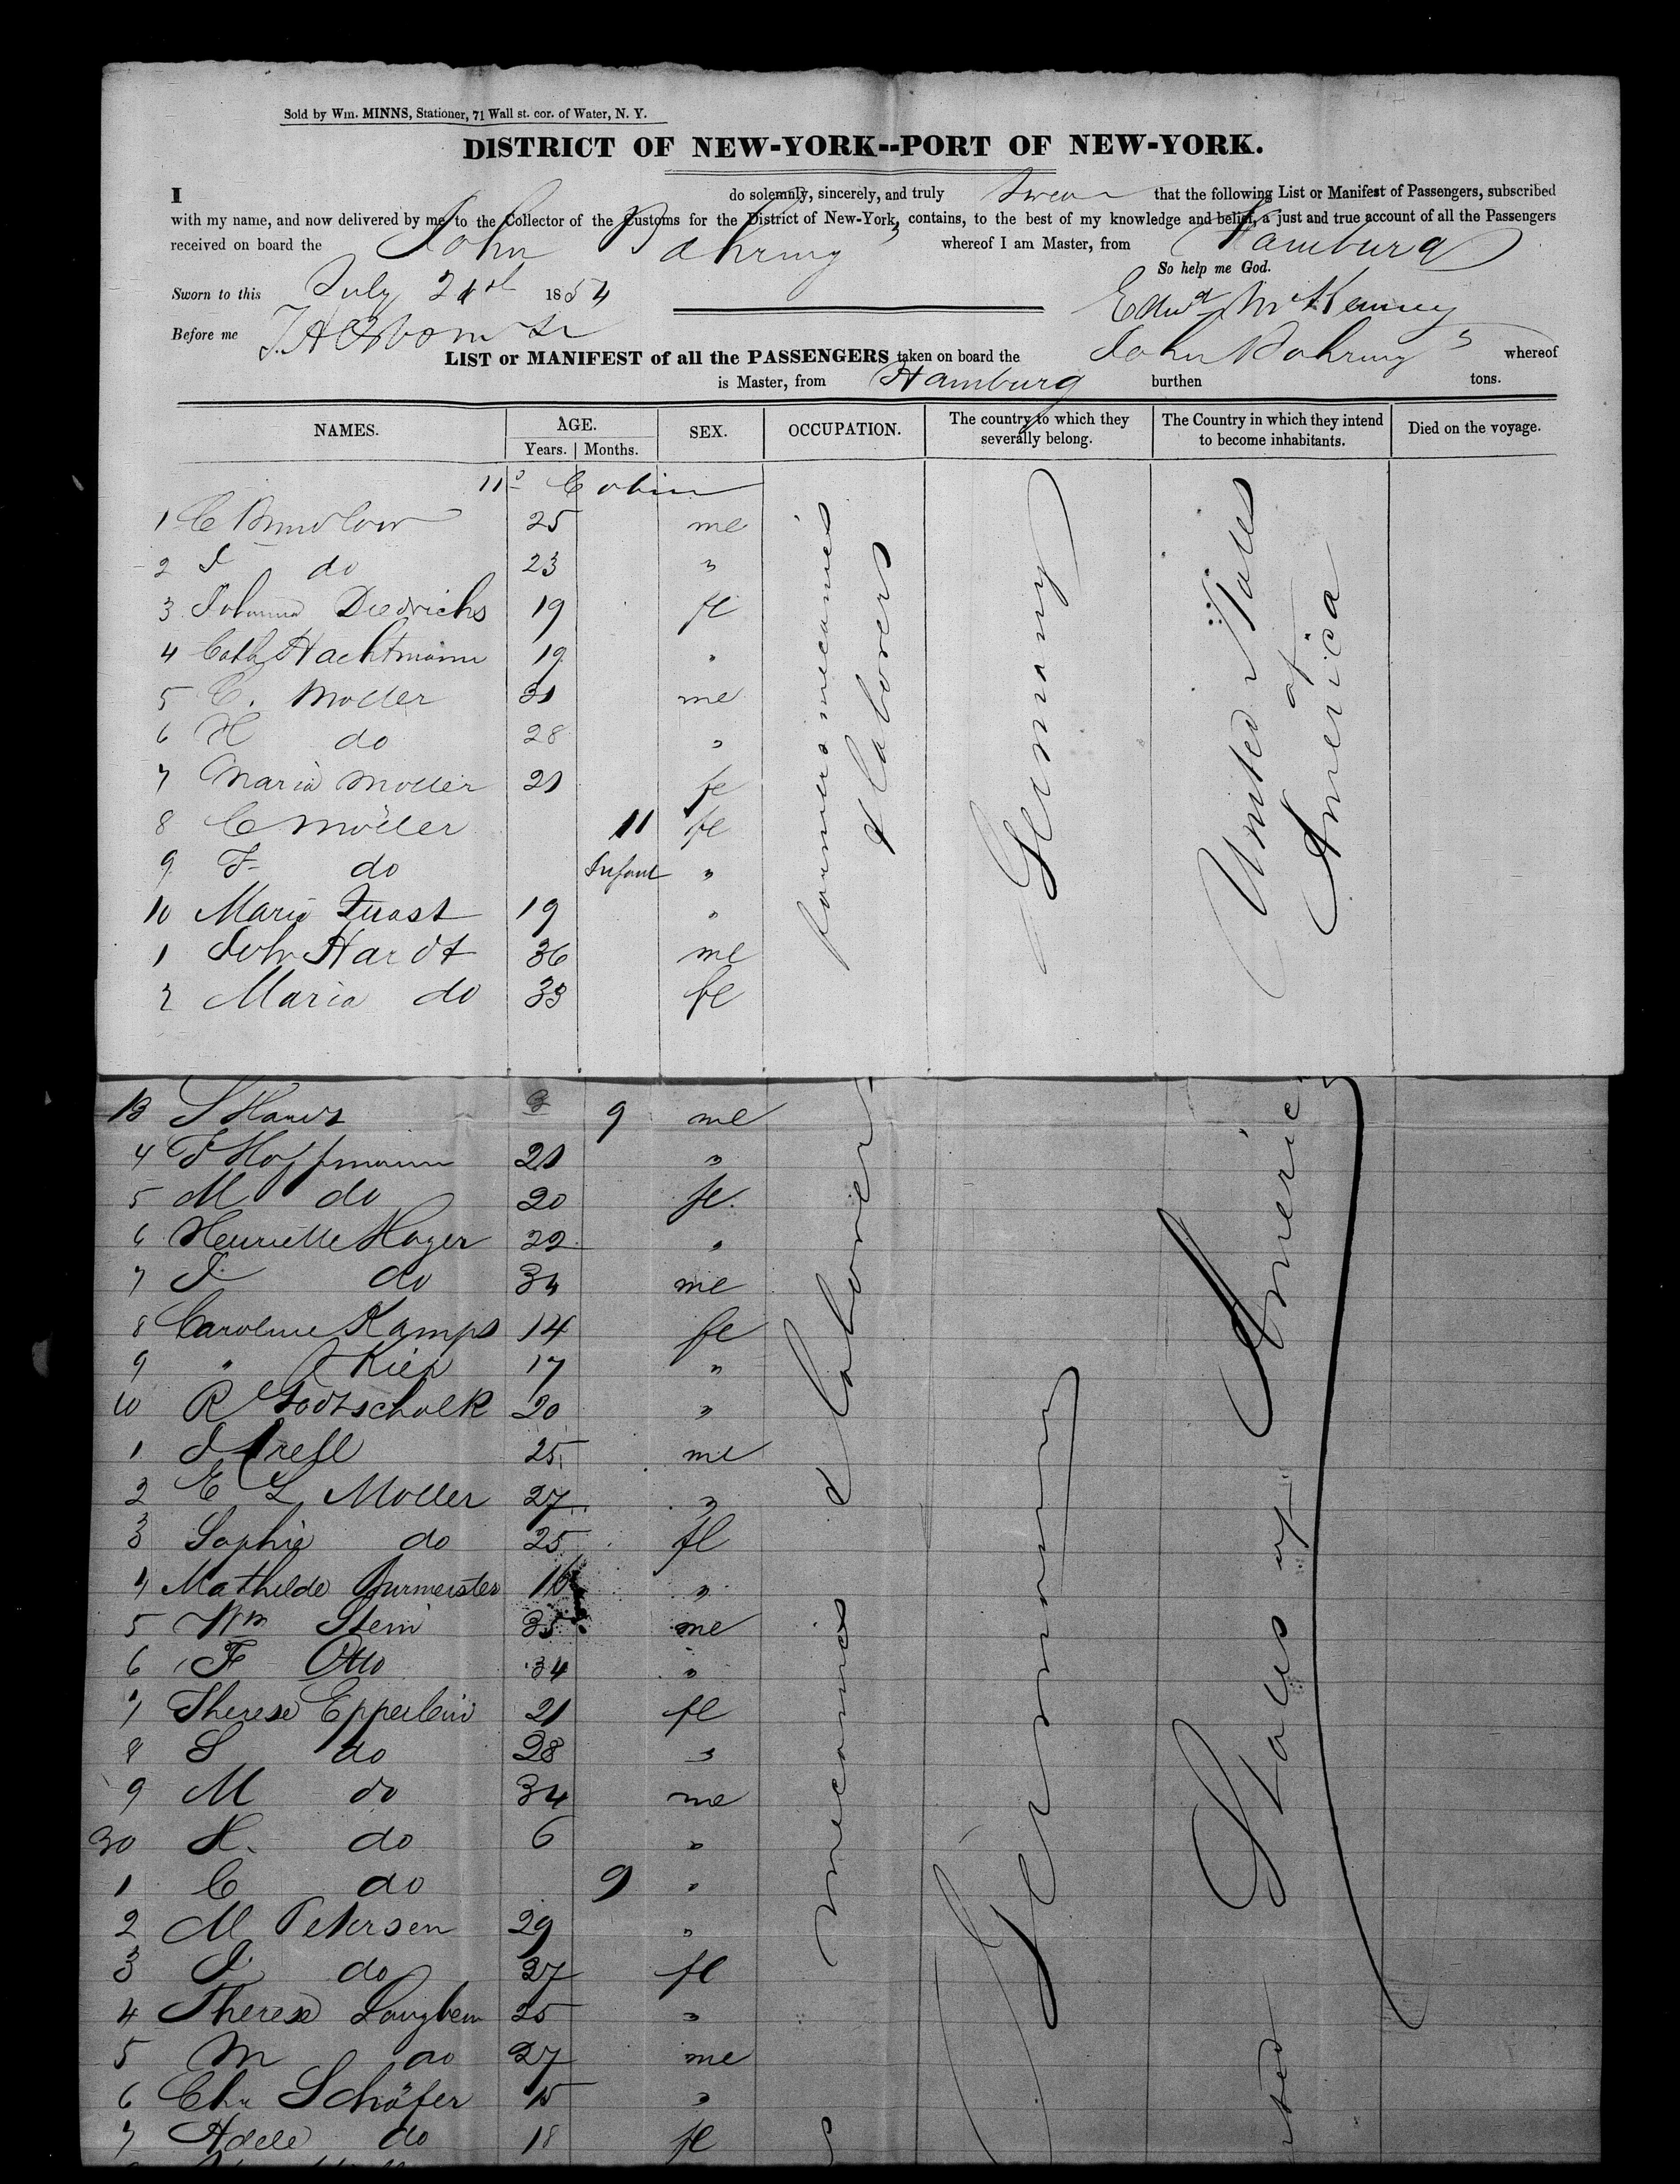 Sold by Wm. MINNS, Stationer, 71 Wall st. cor. of Water, N. Y.
DISTRICT OF NEW-YORK--PORT OF NEW-YORK.
I do solemnly, sincerely, and truly swear that the following List or Manifest of Passengers, subscribed
with my name, and now delivered by me to the Collector of the Customs for the District of New-York, contains, to the best of my knowledge and belief, a just and true account of all the Passengers
received on board the John whereof I am Master, from Hamburg
So help me God.
Sworn to this July 21st 1854
Edwd McKenney
Before me
LIST or MANIFEST of all the PASSENGERS taken on board the John whereof
is Master, from Hamburg burthen tons.
NAMES. AGE. SEX. OCCUPATION. The country to which they severally belong. The Country in which they intend to become inhabitants. Died on the voyage.
Years. Months.
Cabin
farmers mecanics & labourers
Germany
United States of America
1 C 25 me
2 J do 23 "
3 Johanna Diedrichs 19 fe
4 Cath Hachtmann 19 "
5 C. Moller 31 me
6 H do 28 "
7 Maria Moller 21 fe
8 C Möller 11 fe
9 F do Infant "
10 Maria Quast 19 "
1 Joh Hardt 36 me
2 Maria do 33 fe
13 J 9 me
4 F Hoffmann 21 "
5 M do 20 fe.
6 Henriette Hoyer 22 "
7 J do 34 me
8 Caroline Kamps 14 fe
9 " Kier 17 "
10 R Godtschalk 20 "
1 J 25 me
2 E L Moller 27 "
3 Sophie do 25 fe
4 Mathilde Burmeister 16 "
5 Wm Stein 35 me
6 F Otto 34 "
7 Therese Epperlein 21 fe
8 S do 28 "
9 M do 34 me
30 H. do 6 "
1 C do 9 "
2 M Petersen 29 "
3 J do 27 fe
4 Therese 25 "
5 M do 27 me
6 Chr Schöfer 15 "
7 Adele do 18 fe
mecanics & labourers
Germany
States of America